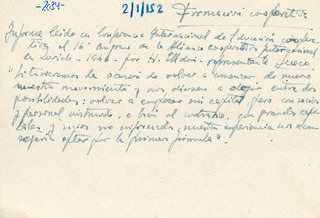 -2034-
2/1/152
Formación cooperativa
Informe leído en Conferencia Internacional de Educación
el 16º de la Alianza Cooperativa Internacional
en Zurich - 1946 - por H. representante Sueco
"Si tuvieramos la ocasión de volver a comenzar, de nuevo
nuestro movimiento y nos diesen a elegir entre dos
posibilidades: volver a empezar sin capital, pero con socios
y personal instruido, o bien al contrario, con grandes capi-
tales y socios no informados, nuestra experiencia nos
optar por la primera fórmula".